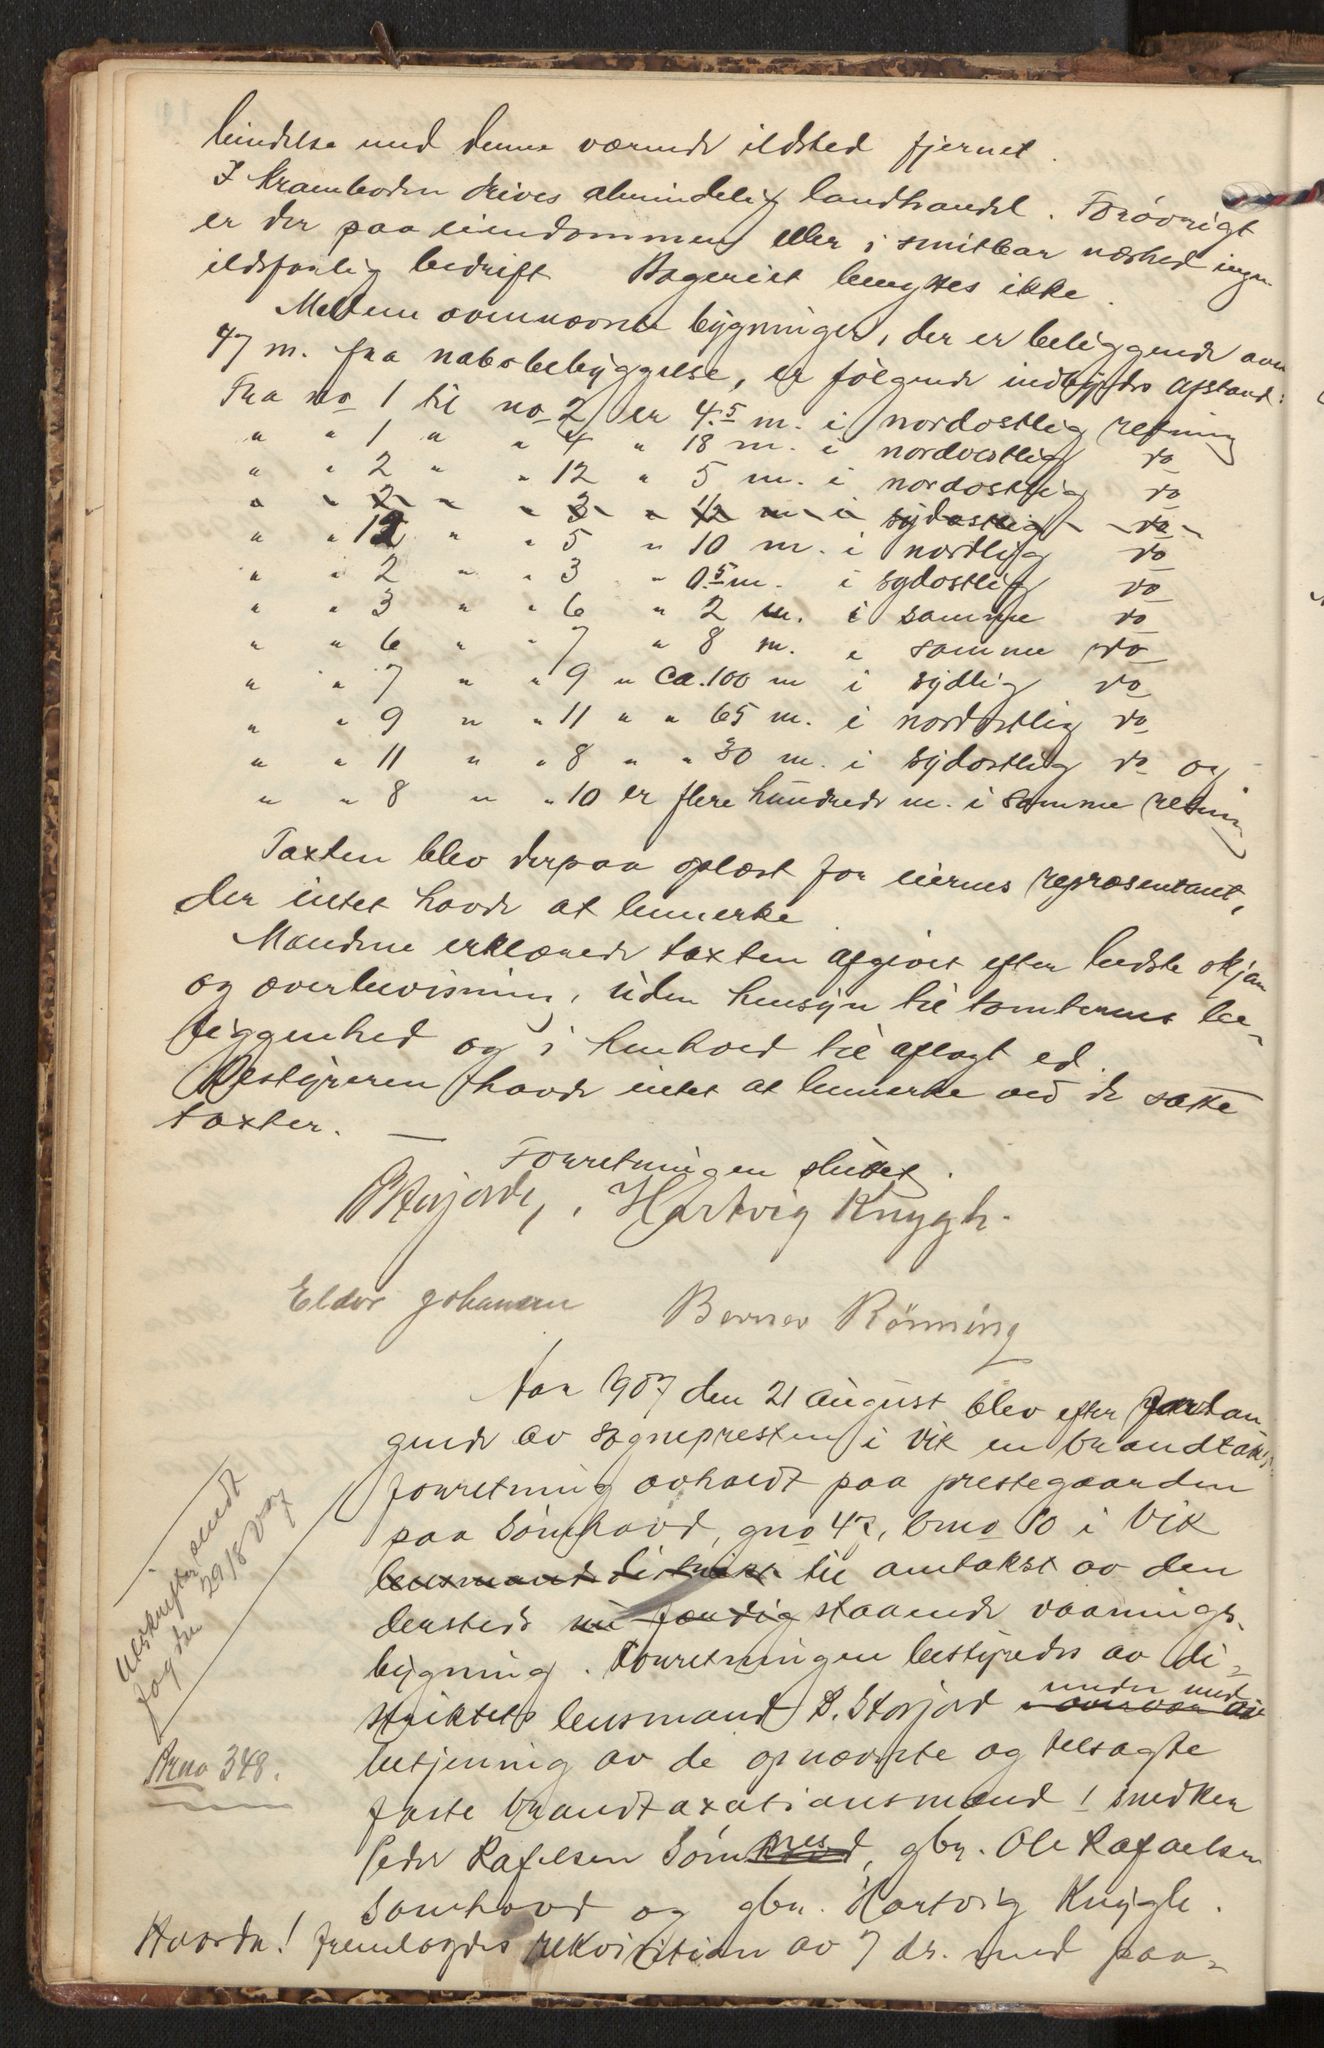 bindelse med denne værende ildsted fjernet.
I kramboden drives almindelig landhandel. Forøvrigt
er der paa eiendommen eller i smitbar nærhed ingen
ildsfarlig bedrift Bageriet benyttes ikke.
Mellem ovennævnte bygninger, der er beliggende over
47 m. fra nabobebyggelse, er følgende indbyrdes afstand:
Fra no 1 til no 2 er 4.5 m. i nordostlig retning
" " 1 " " 4 " 18 m. i nordvestlig do
" " 2 " " 12 " 5 m. i nordostlig do
" " 2 " " 3 " 1/2 m i sydostlig do
" " 12 " " 5 " 10 m. i nordlig do
" " 2 " " 3 " 0.5 m. i sydostlig do
" " 3 " " 6 " 2 m. i samme do
" " 6 " " 7 " 8 m. i samme do
" " 7 " " 9 " ca. 100 m i sydlig do
" " 9 " " 11 " " 65 m. i nordostlig do
" " 11 " " 8 " " 30 m. i sydostlig do og
" " 8 " " 10 er flere hundrede m. i samme retning
Taxten blev derpaa oplæst for eierens repræsentant,
der intet havde at bemerke.
Mændene erklærede taxten afgivet efter bedste skjøn
og overbevisning, uden hensyn til tomternes be-
liggenhed og i henhold til aflagt ed.
Bestyreren havde intet at bemerke ved de satte
taxter. —
Forretningen sluttet.
P Storjord, . Hartvig Knygh.
Eldor Johansen Berner Rønning
Aar 1907 den 21 august blev efter forlan
gende av sognepresten i Vik en brandtakst-
forretning avholdt paa prestegaarden
paa Sømhovd, gno 47, bno 10 i Vik
lensmandsdistrikt til omtakst av den
dersteds nu færdig staaende vaanings-
bygning. Forretningen bestyredes av di-
striktets lensmand P. Storjord under med
betjening av de opnævnte og tilsagte
faste brandtaxationsmænd! snedker
Peder Rafelsen Sømnes, gbr. Ole Rafaelsen
Sømhovd og gbr. Hartvig Knygh.
Hvorda! fremlagdes rekvisition av 7 ds. med paa-
Utskrift sendt
fogden 29/8 07
Brno 348.